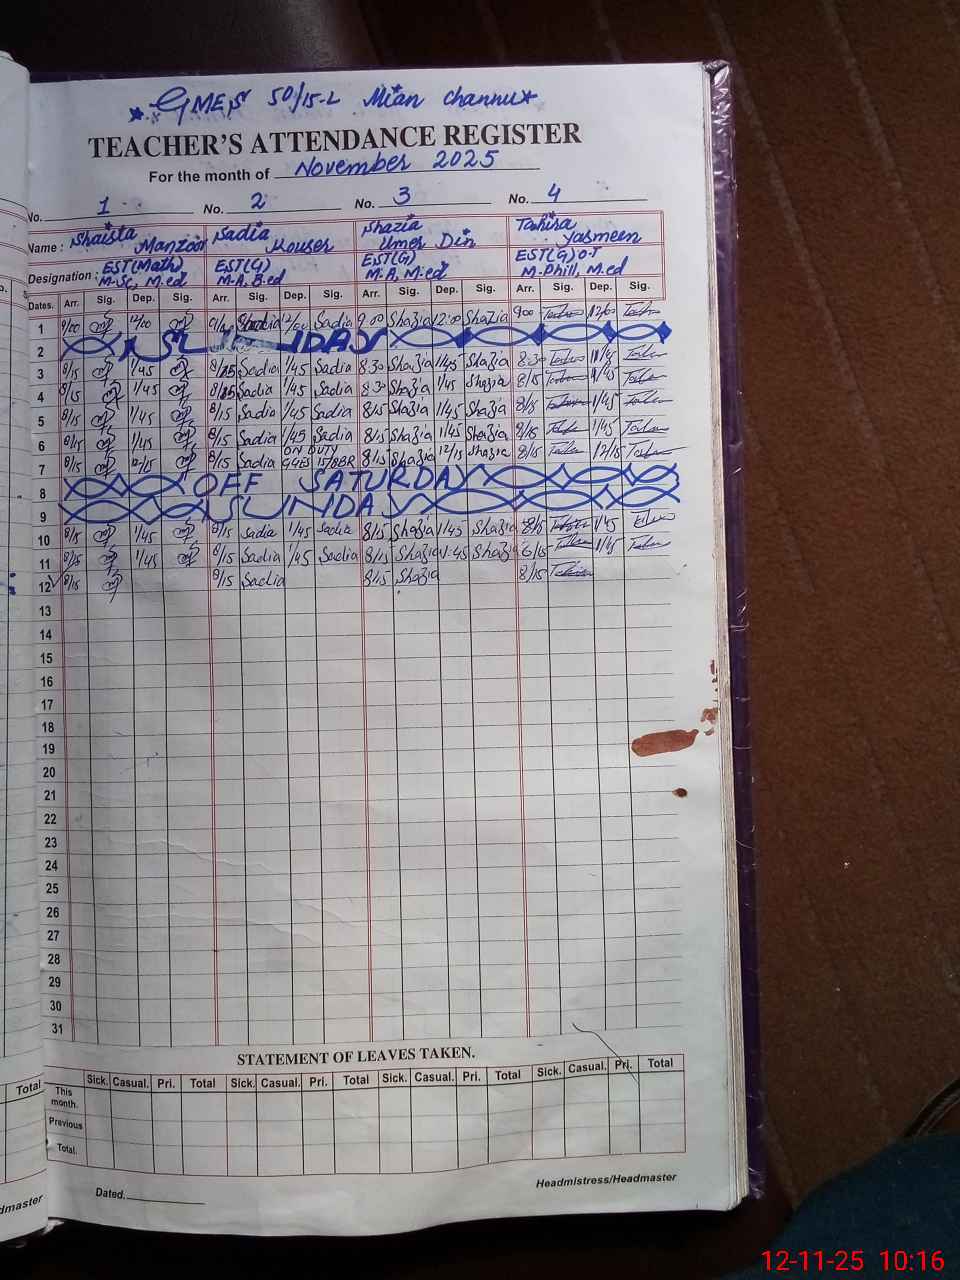 GMES 50/15-L Mian Channu
TEACHER'S ATTENDANCE REGISTER
For the month of November 2025
No. 1 No. 2 No. 3 No. 4
Name: Shaista Manzoor Sadia Kouser Shazia Umer Din Tahira Yasmeen
Designation: EST(Math) M-Sc, M.ed EST(G) M-A, B.ed EST(G) M-A, M.ed EST(G) M-Phill, M.ed
Dates. Arr. Sig. Dep. Sig. Arr. Sig. Dep. Sig. Arr. Sig. Dep. Sig. Arr. Sig. Dep. Sig.
1 9/00 12/00 Sadia 12/00 Sadia 9:00 Shazia 12:00 Shazia 9:00 12/00
2 SUNDAY
3 8/15 1/45 8/15 Sadia 1/45 Sadia 8:30 Shazia 1:45 Shazia 8:30 1/45
4 8/15 1/45 8/15 Sadia 1/45 Sadia 8:30 Shazia 1/45 Shazia 8/15 1/45
5 8/15 1/45 8/15 Sadia 1/45 Sadia 8/15 Shazia 1/45 Shazia 8/15 1/45
6 8/15 1/45 8/15 Sadia 1/45 Sadia 8/15 Shazia 1/45 Shazia 8/15 1/45
7 8/15 12/15 8/15 Sadia ON DUTY 8/15 Shazia 12/15 Shazia 8/15 12/15
8 OFF SATURDAY
9 SUNDAY
10 8/15 1/45 8/15 Sadia 1/45 Sadia 8/15 Shazia 1/45 Shazia 8/15 1/45
11 8/15 1/45 8/15 Sadia 1/45 Sadia 8/15 Shazia 1:45 Shazia 8/15 1/45
12 8/15 8/15 Sadia 8/15 Shazia 8/15
13
14
15
16
17
18
19
20
21
22
23
24
25
26
27
28
29
30
31
STATEMENT OF LEAVES TAKEN.
Sick. Casual. Pri. Total Sick. Casual. Pri. Total Sick. Casual. Pri. Total Sick. Casual. Pri. Total
This month.
Previous
Total.
Total
Headmistress/Headmaster
Dated.
12-11-25 10:16